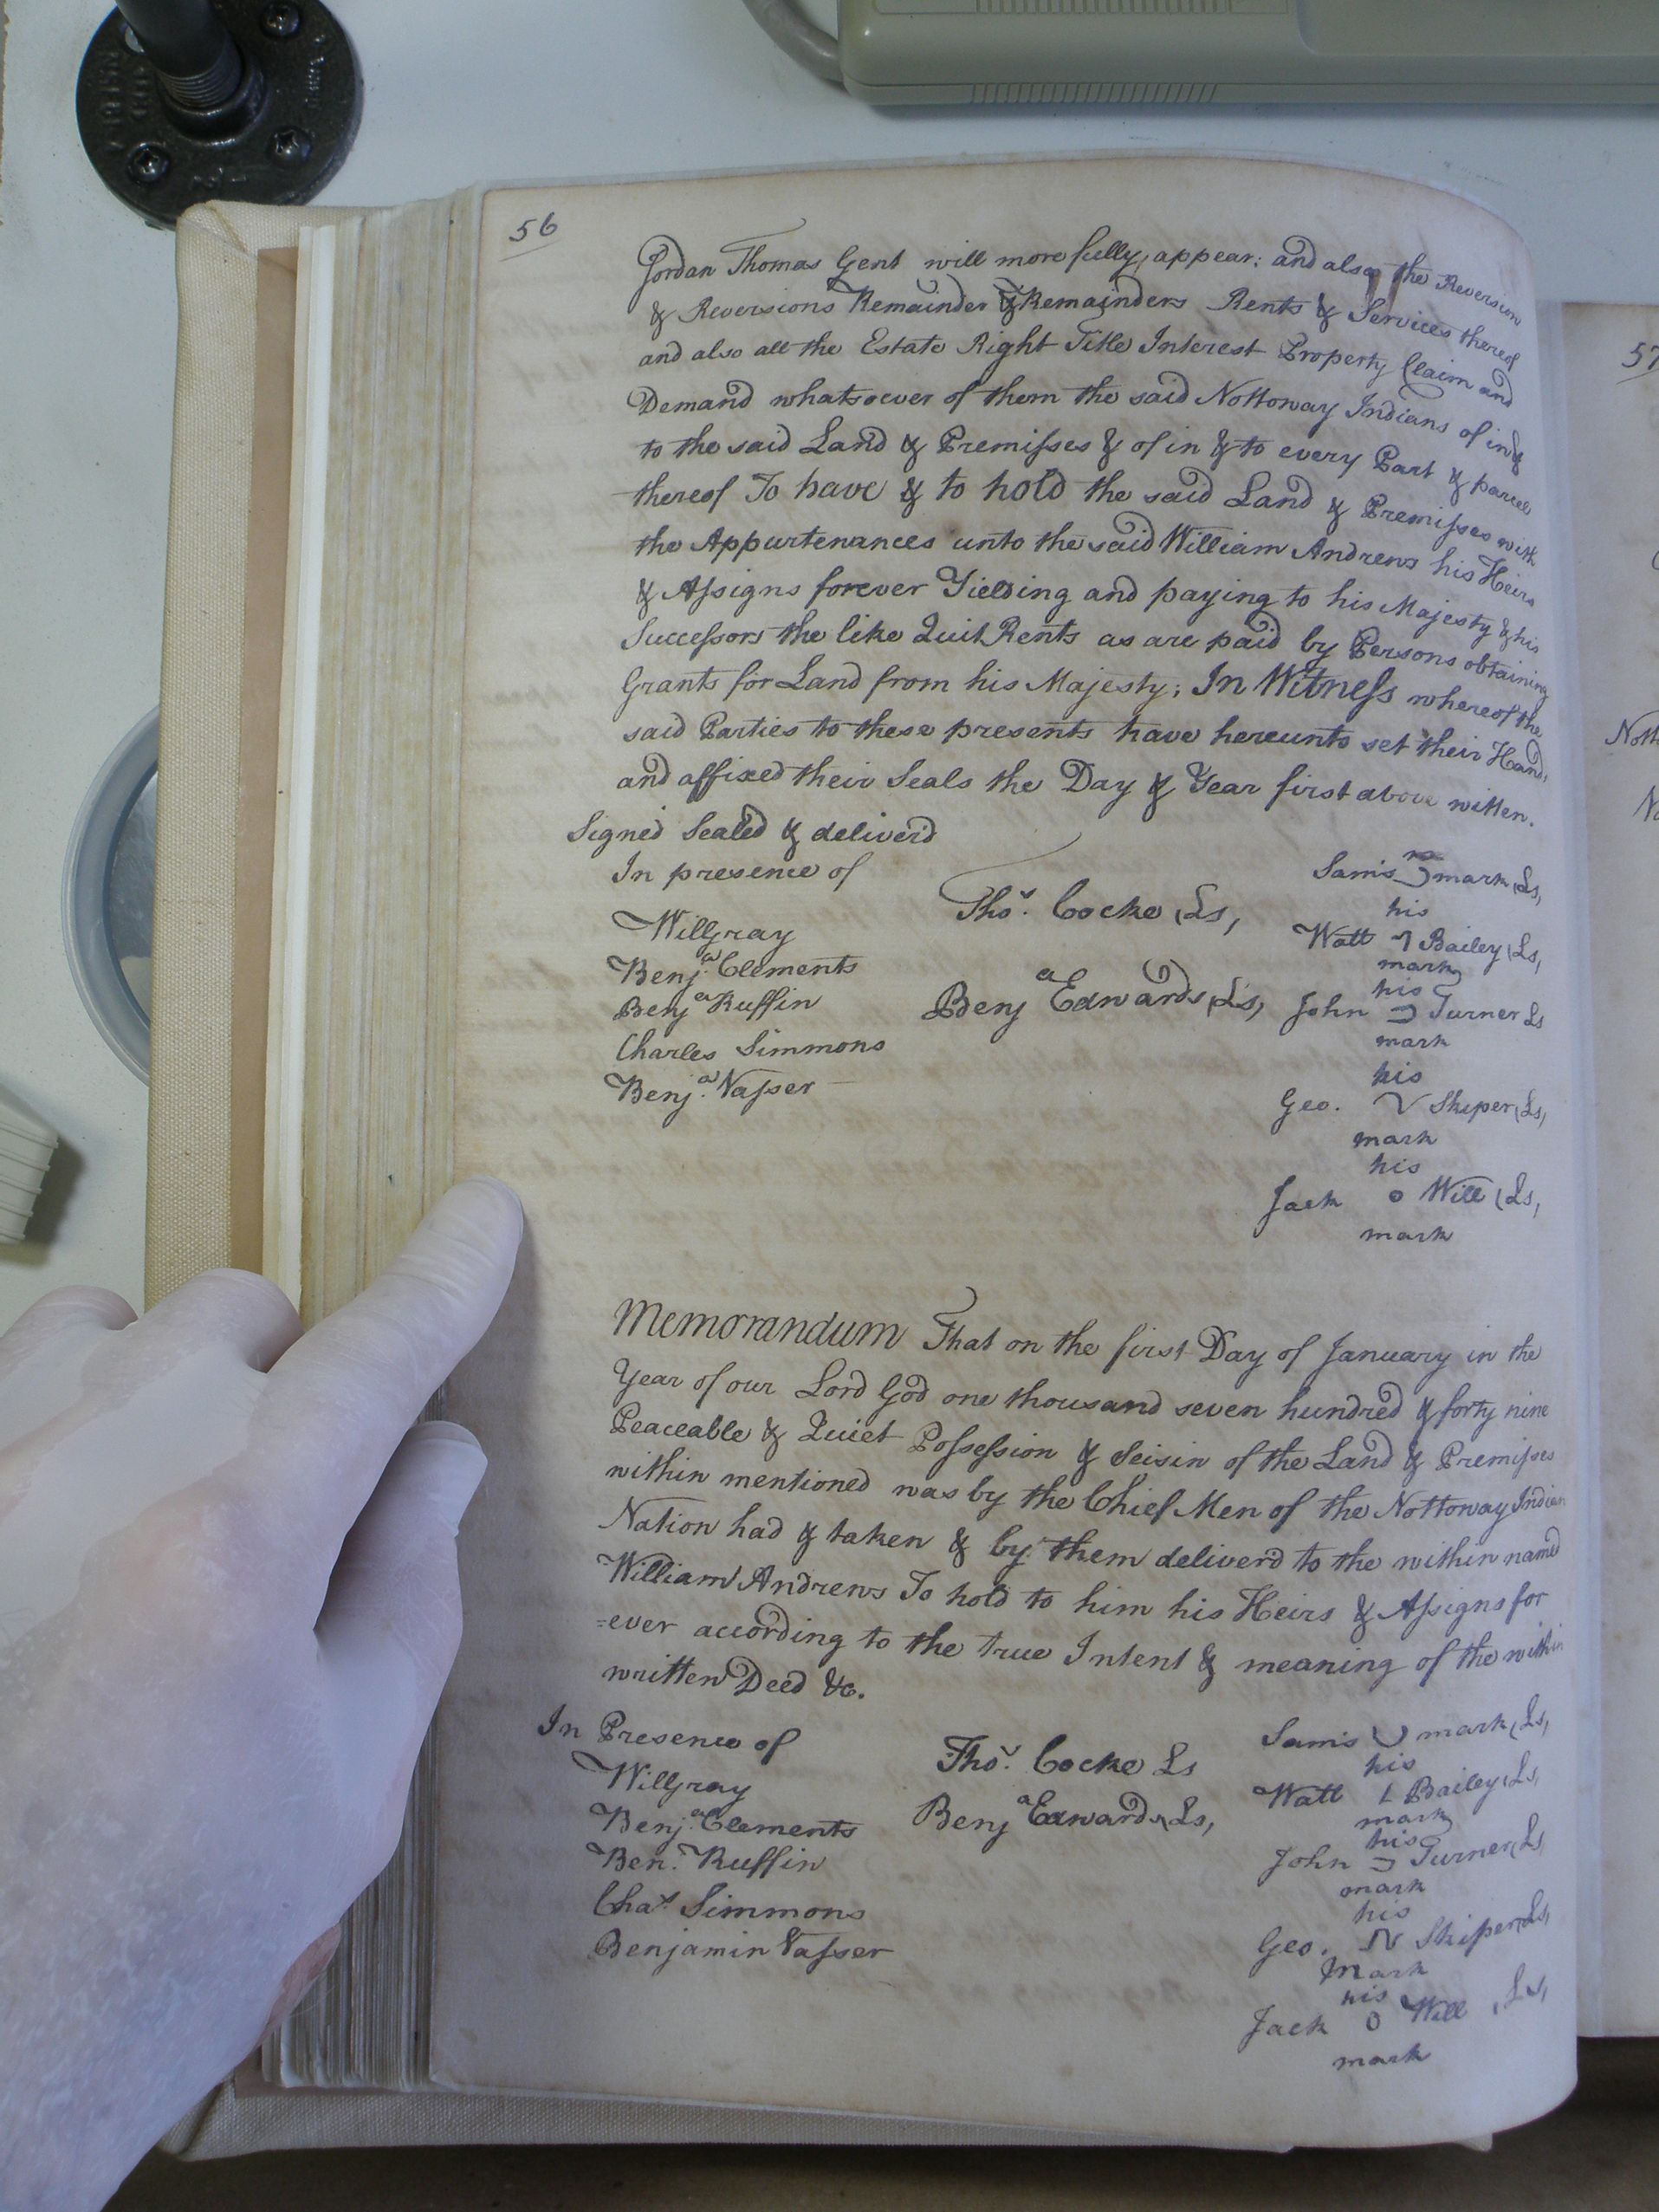 56
Jordan Thomas Gent will more fully appear; and also the Reversion
& Reversions Remainder & Remainders Rents & Services thereof
and also all the Estate Right Title Interest Property Claim and
Demand whatsoever of them the said Nottoway Indians of in &
to the said Land & Premisses & of in & to every Part & parcel
thereof To have & to hold the said Land & Premisses with
the Appurtenances unto the said William Andrews his Heirs
& Assigns forever Yielding and paying to his Majesty & his
Successors the like Quit Rents as are paid by Persons obtaining
Grants for Land from his Majesty; In Witness whereof the
said Parties to these presents have hereunto set their Hands
and affixed their Seals the Day & Year first above witten.
Signed Sealed & deliver'd
In presence of
Will Gray
Benj.a Clements
Benj.a Ruffin
Charles Simmons
Benj.a Vasser
Tho.s Cocke (Ls,
Benj.a Edwards (Ls,
Sam's mark (Ls,
his
Watt Bailey (Ls,
mark
his
John Turner Ls
mark
his
Geo. Skiper (Ls,
mark
his
Jack o Will (Ls,
mark
Memorandum That on the first Day of January in the
Year of our Lord God one thousand seven hundred & forty nine
Peaceable & Quiet Possession & Seisin of the Land & Premisses
within mentioned was by the Chief Men of the Nottoway Indian
Nation had & taken & by them deliver'd to the within named
William Andrews To hold to him his Heirs & Assigns for
=ever according to the true Intent & meaning of the within
written Deed &c.
In Presence of
Will Gray
Benj.a Clements
Ben. Ruffin
Cha.s Simmons
Benjamin Vasser
Tho.s Cocke Ls
Benj.a Edwards (Ls,
Sam's mark (Ls,
his
Watt Bailey (Ls,
mark
his
John Turner (Ls
mark
his
Geo. Skiper (Ls,
mark
his
Jack o Will (Ls,
mark
57